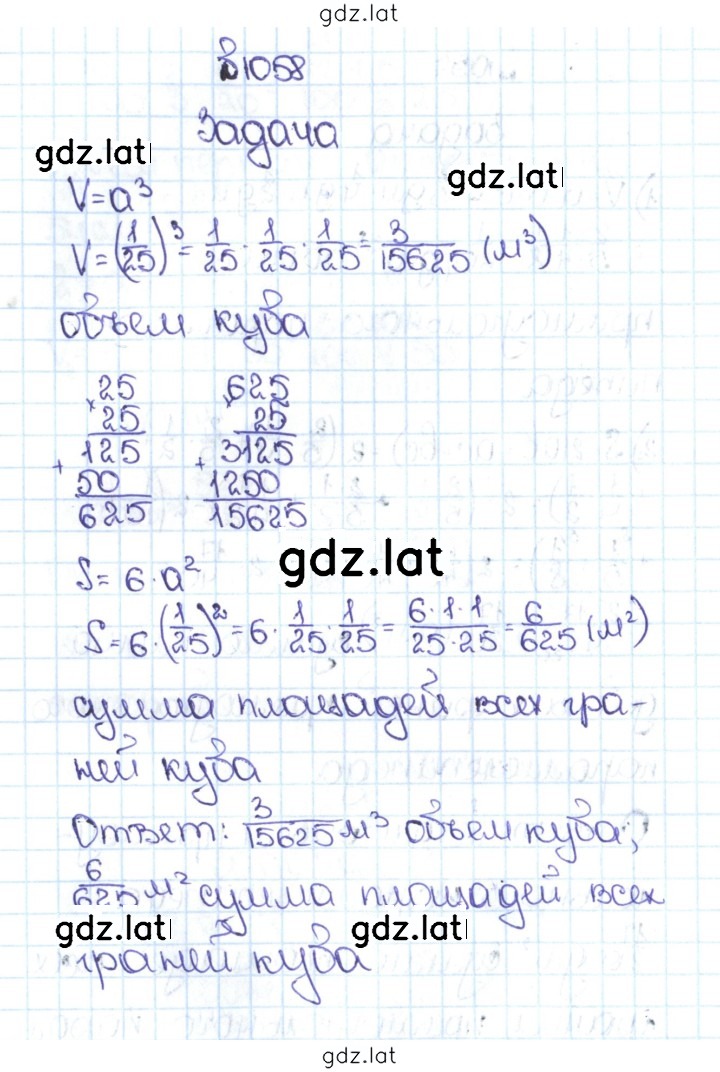 gdz.lat
№1058
Задача
gdz.lat
gdz.lat
V=a³
V=(1/25)³=1/25·1/25·1/25=3/15625(м³)
объем куба
25 625
× 25 × 25
125 3125
+ 50 + 1250
625 15625
gdz.lat
S=6·a²
S=6·(1/25)²=6·1/25·1/25=6·1·1/25·25=6/625(м²)
сумма площадей всех гра-
ней куба
Ответ: 3/15625 м³ объем куба,
6/625 м² сумма площадей всех
gdz.lat gdz.lat
граней куба
gdz.lat